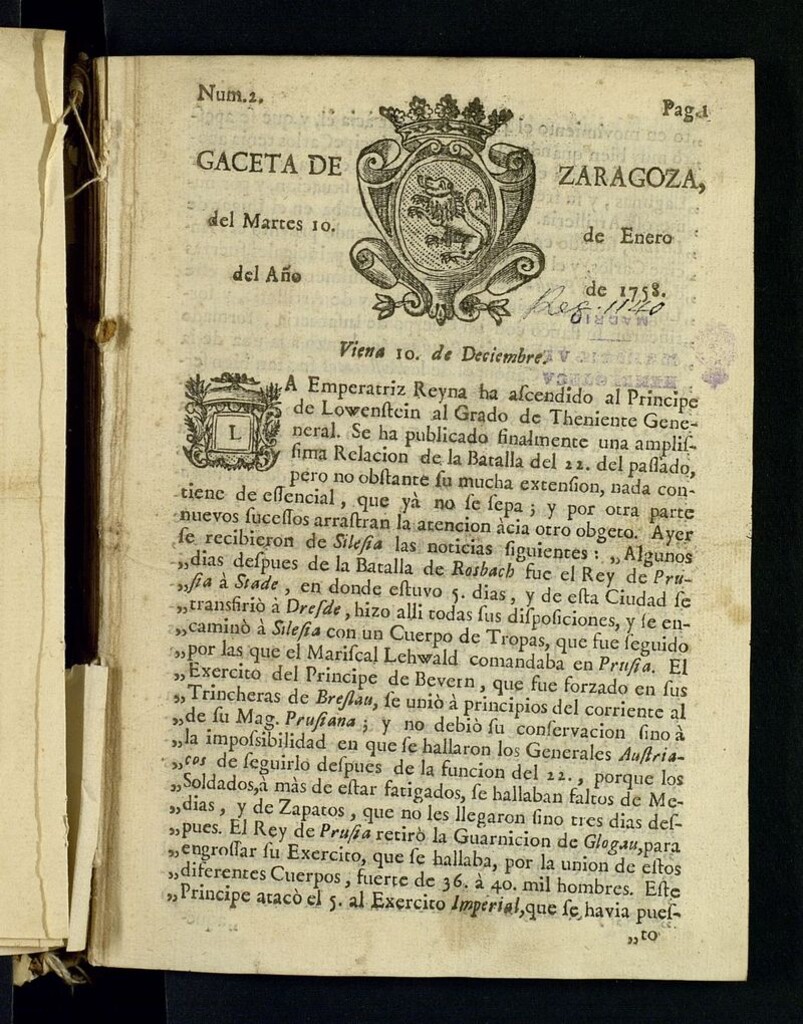 Num.2.
Pag.1
GACETA DE ZARAGOZA,
del Martes 10. de Enero
del Año de 1758.
Reg. 1140
MADRID
HEMEROTECA
Viena 10. de Deciembre.
LA Emperatriz Reyna ha aſcendido al Principe
de Lowenſtein al Grado de Theniente Gene-
neral. Se ha publicado finalmente una ampliſ-
ſima Relacion de la Batalla del 22. del paſſado,
pero no obſtante ſu mucha extenſion, nada con-
tiene de eſſencial, que yà no ſe ſepa; y por otra parte
nuevos ſuceſſos arraſtran la atencion àcia otro obgeto. Ayer
ſe recibieron de Sileſia las noticias ſiguientes: „Algunos
„dias deſpues de la Batalla de Rosbach fue el Rey de Pru-
„ſia à Stade, en donde eſtuvo 5. dias, y de eſta Ciudad ſe
„transfiriò à Dreſde, hizo alli todas ſus diſpoſiciones, y ſe en-
„caminò à Sileſia con un Cuerpo de Tropas, que fue ſeguido
„por las que el Mariſcal Lehwald comandaba en Pruſia. El
„Exercito del Principe de Bevern, que fue forzado en ſus
„Trincheras de Breſlau, ſe uniò à principios del corriente al
„de ſu Mag. Pruſiana; y no debiò ſu conſervacion ſino à
„la impoſsibilidad en que ſe hallaron los Generales Auſtria-
„cos de ſeguirlo deſpues de la funcion del 22., porque los
„Soldados,à màs de eſtar fatigados, ſe hallaban faltos de Me-
„dias, y de Zapatos, que no les llegaron ſino tres dias deſ-
„pues. El Rey de Pruſia retirò la Guarnicion de Glogau,para
„engroſſar ſu Exercito, que ſe hallaba, por la union de eſtos
„diferentes Cuerpos, fuerte de 36. à 40. mil hombres. Eſte
„Principe atacò el 5. al Exercito Imperial,que ſe havia pueſ-
„to